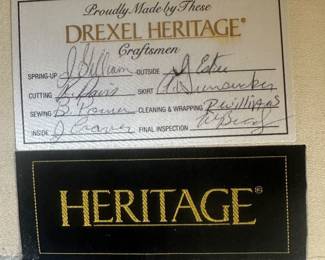 Proudly Made by These
DREXEL HERITAGE®
Craftsmen
SPRING-UP J William OUTSIDE J Estes
CUTTING K Davis SKIRT
SEWING B. Bowen CLEANING & WRAPPING R Williams
INSIDE J Craver FINAL INSPECTION
HERITAGE®